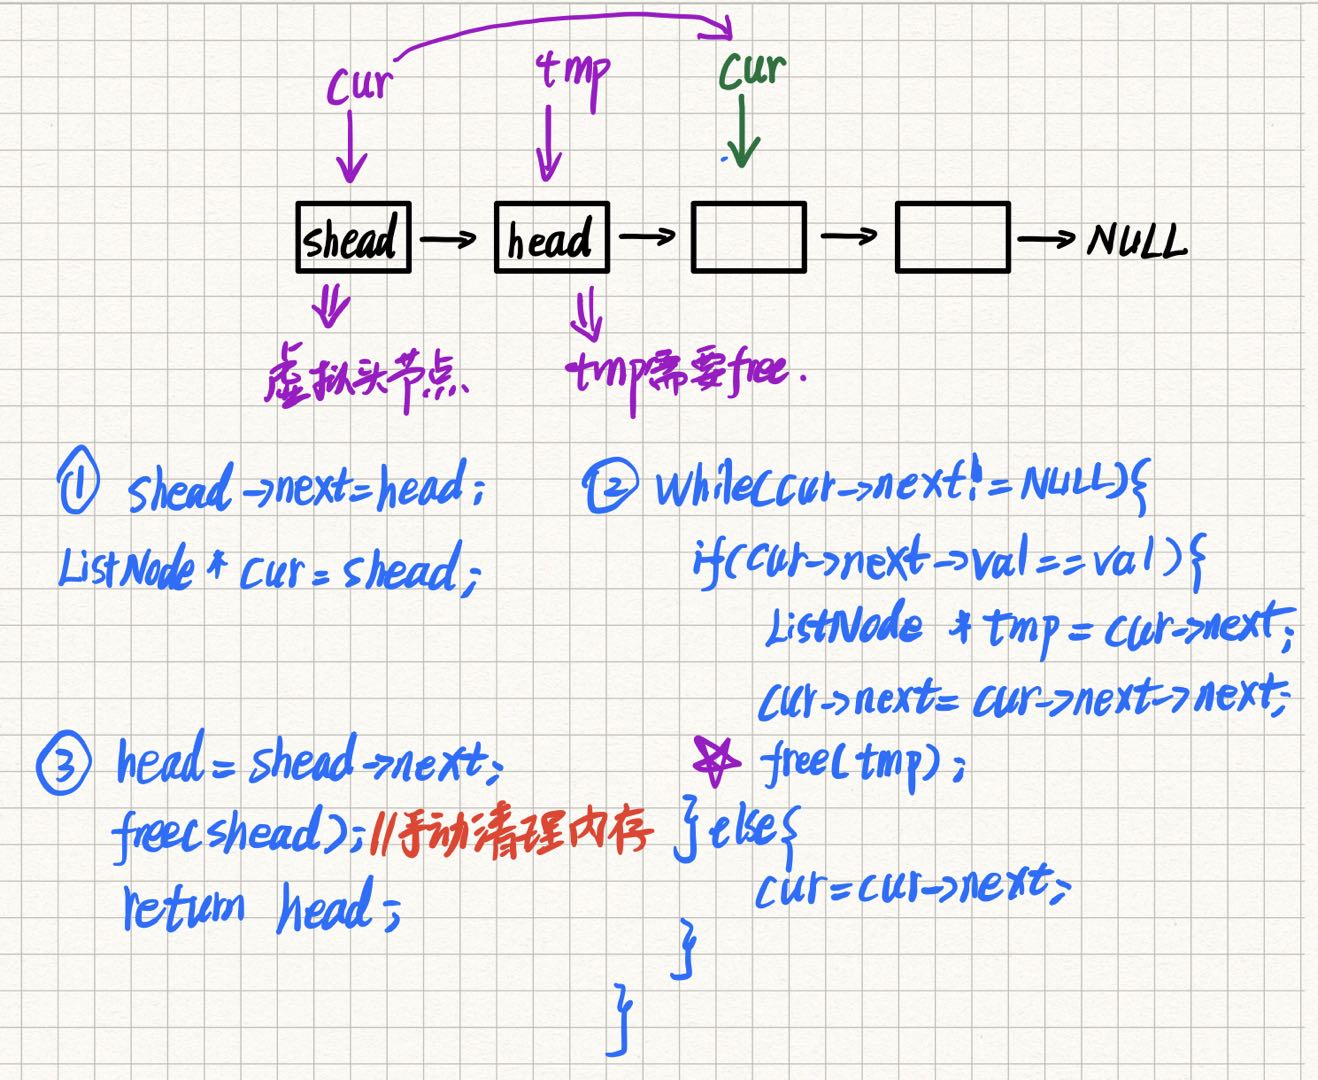 cur tmp cur
shead head NULL
虚拟头节点 tmp需要free.
① shead->next=head;
ListNode * cur = shead;
② while(cur->next!=NULL){
if(cur->next->val==val){
ListNode * tmp = cur->next;
cur->next= cur->next->next;
free(tmp);
}else{
cur=cur->next;
}
}
③ head = shead->next;
free(shead);//手动清理内存
return head;